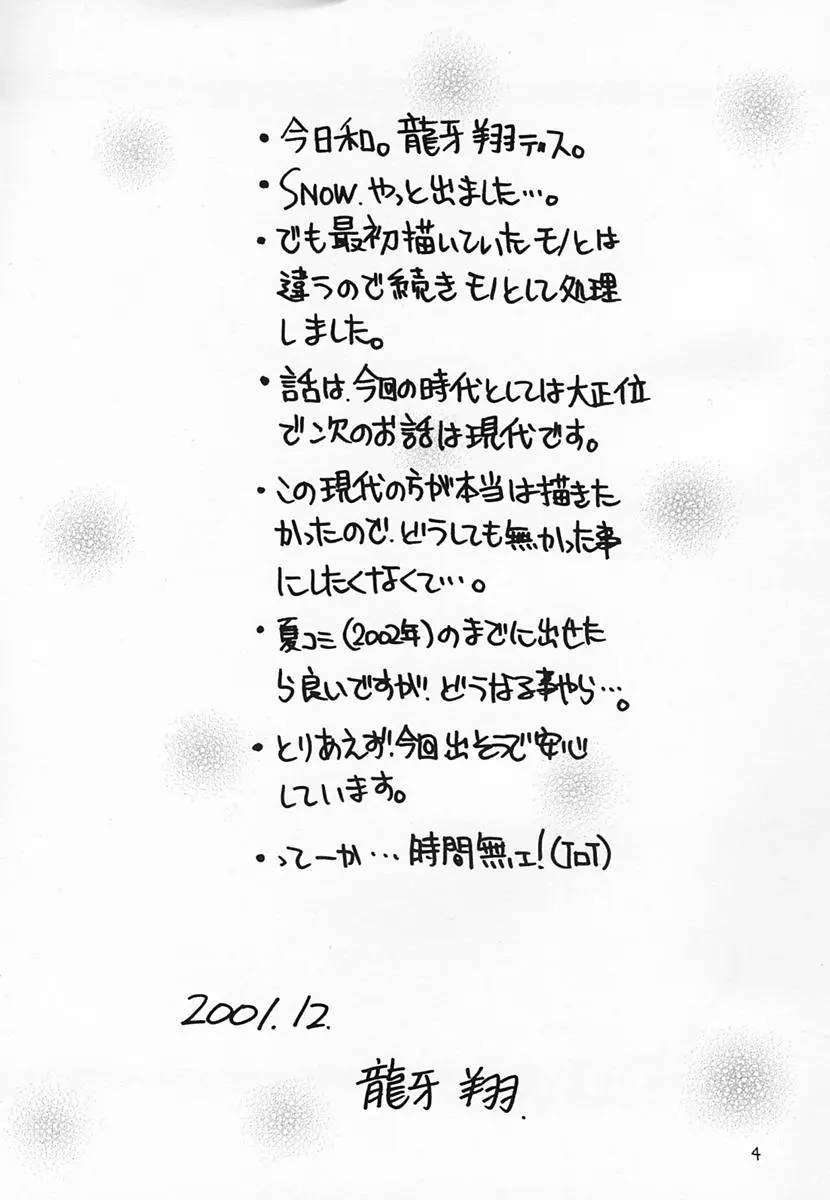 ・今日和。龍牙翔デス。
・SNOW.やっと出ました…。
・でも最初描いていたモノとは
違うので続きモノとして処理
しました。
・話は、今回の時代としては大正位
で次のお話は現代です。
・この現代の方が本当は描きた
かったので、どうしても無かった事
にしたくなくて…。
・夏コミ(2002年)のまでに出せた
ら良いですが、どうなる事やら…。
・とりあえず、今回出そうで安心
しています。
・ってーか…時間無ェ!(ToT)
2001.12.
龍牙 翔.
4